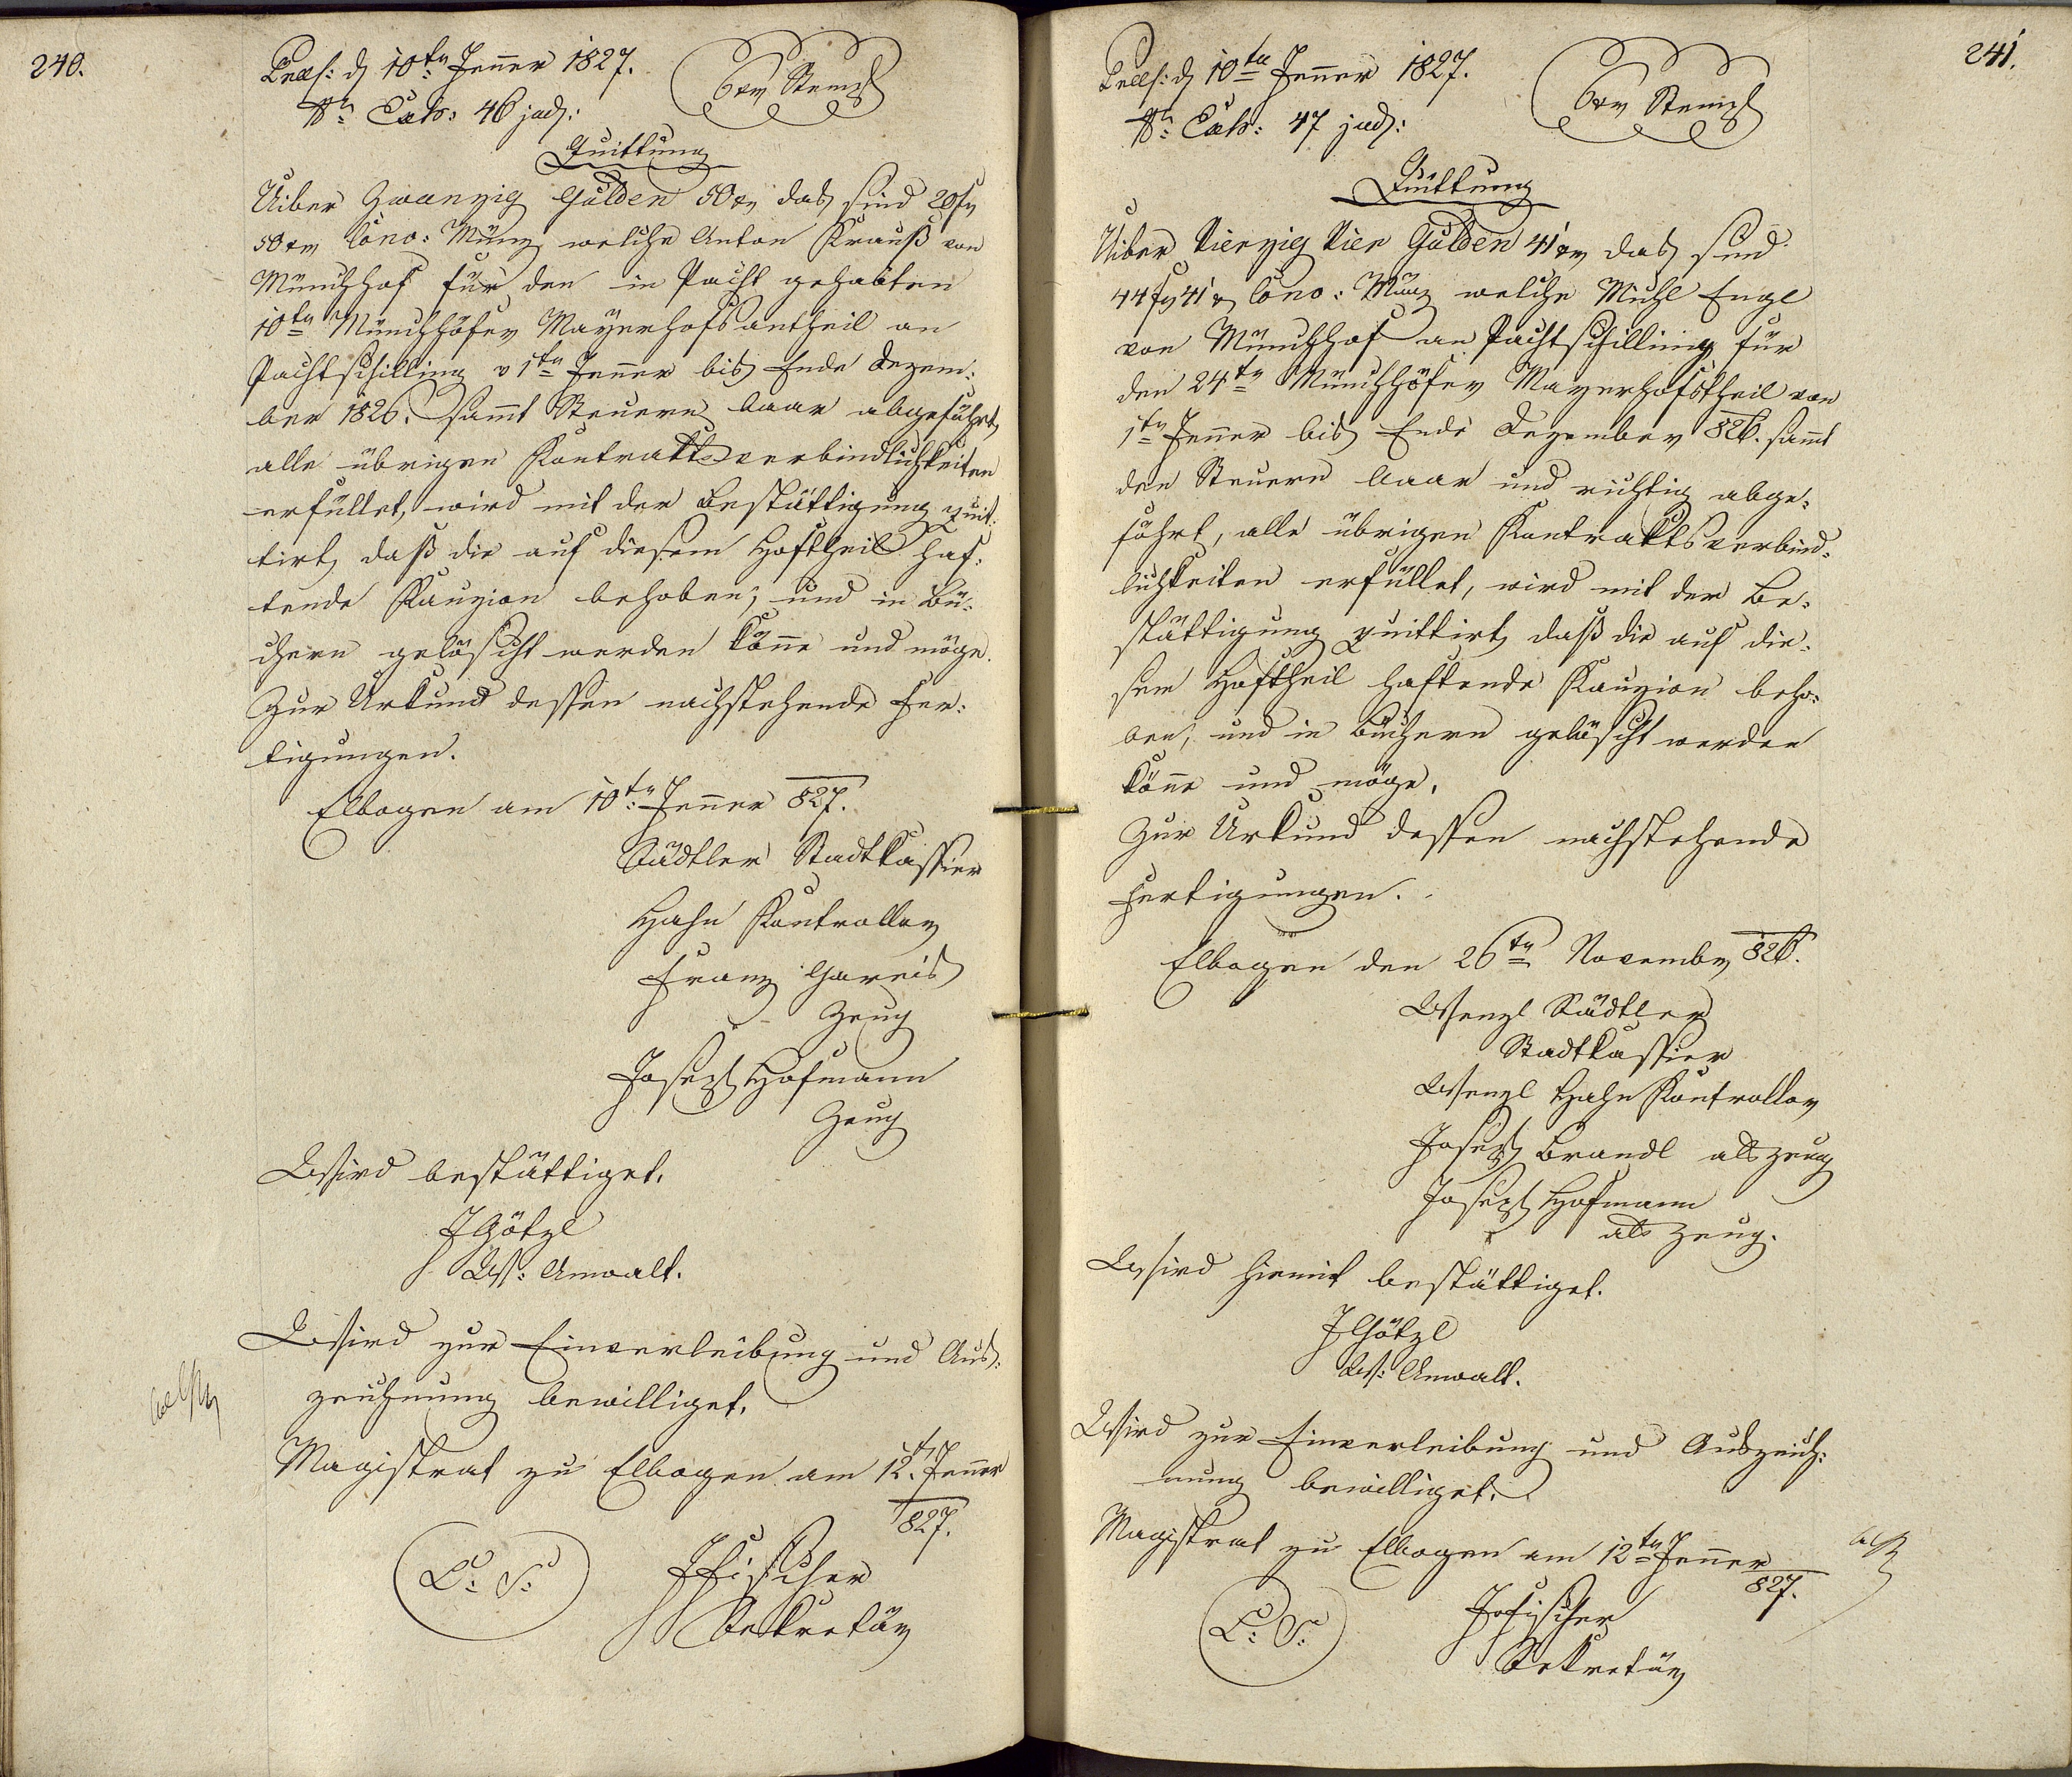 240.
Praes: d 10ten Jenner 1827.
6 xr Stempl
Nr. Exh: 46 jud:
Quittung
Uiber Zwanzig Gulden 50 xr das sind 20 fr
50 xr Conv: Münz, welche Anton Krauß von
Münchhof für den in Pacht gehabten
10ten Münchhöfer Mayerhofsantheil an
Pachtschilling v 1ten Jenner bis Ende Dezem:
ber 1826. sammt Steuern baar abgeführt,
alle übrigen Kontraktsverbindlichkeiten
erfüllet, wird mit der Bestättigung quit:
tirt, daß die auf diesem Hoftheil haf:
tende Kauzion behoben, und in Bü:
chern gelöscht werden könne und möge.
Zur Urkund dessen nachstehende Fer:
tigungen.
Elbogen am 10ten Jenner 827.
Städtler Stadtkassier
Hahn Kontrollor
Franz Gareis
Zeug
Joseph Hofmann
Zeug
Wird bestättiget.
J Götzl
Anwalt.
Wird zur Einverleibung und Aus:
zeichnung bewilliget.
Magistrat zu Elbogen am 12t Jenner
827.
L: S:
JFischer
Sekretär
241.
Praes: d 10ten Jenner 1827.
6 xr Stempl
Nr. Exh: 47 jud:
Quittung
Uiber Vierzig Vier Gulden 41 xr das sind
44 fr 41 x Conv: Münz welche Michl Engl
von Münchhof an Pachtschilling für
den 24ten Münchhöfer Mayerhofstheil von
1ten Jenner bis Ende Dezember 826. sammt
den Steuern baar und richtig abge:
führt, alle übrigen Kontraktsverbind:
lichkeiten erfüllet, wird mit der Be:
stättigung quittirt, daß die auf die:
sem Hoftheil haftende Kauzion beho:
ben, und in Büchern gelöscht werden
könne und möge.
Zur Urkund dessen nachstehende
Fertigungen.
Elbogen den 26ten November 826.
Wenzl Städtler
Stadtkassier
Wenzl Hahn Kontrollor
Joseph Brandl als Zeug
Joseph Hofmann
als Zeug.
Wird hiemit bestättiget.
J Götzl
Anwalt.
Wird zur Einverleibung und Auszeich:
nung bewilliget.
Magistrat zu Elbogen am 12ten Jenner
827.
L: S:
JFischer
Sekretär